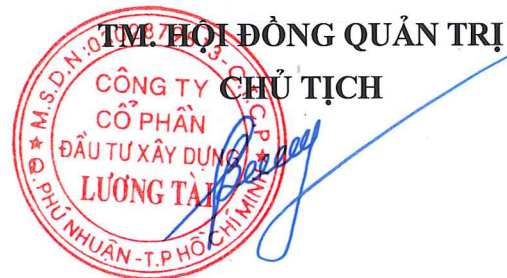 TM. HỘI ĐỒNG QUẢN TRỊ
CHỦ TỊCH
CÔNG TY
CỔ PHẦN
ĐẦU TƯ XÂY DỰNG
LƯƠNG TÀI
Q. PHÚ NHUẬN - T.P HỒ CHÍ MINH